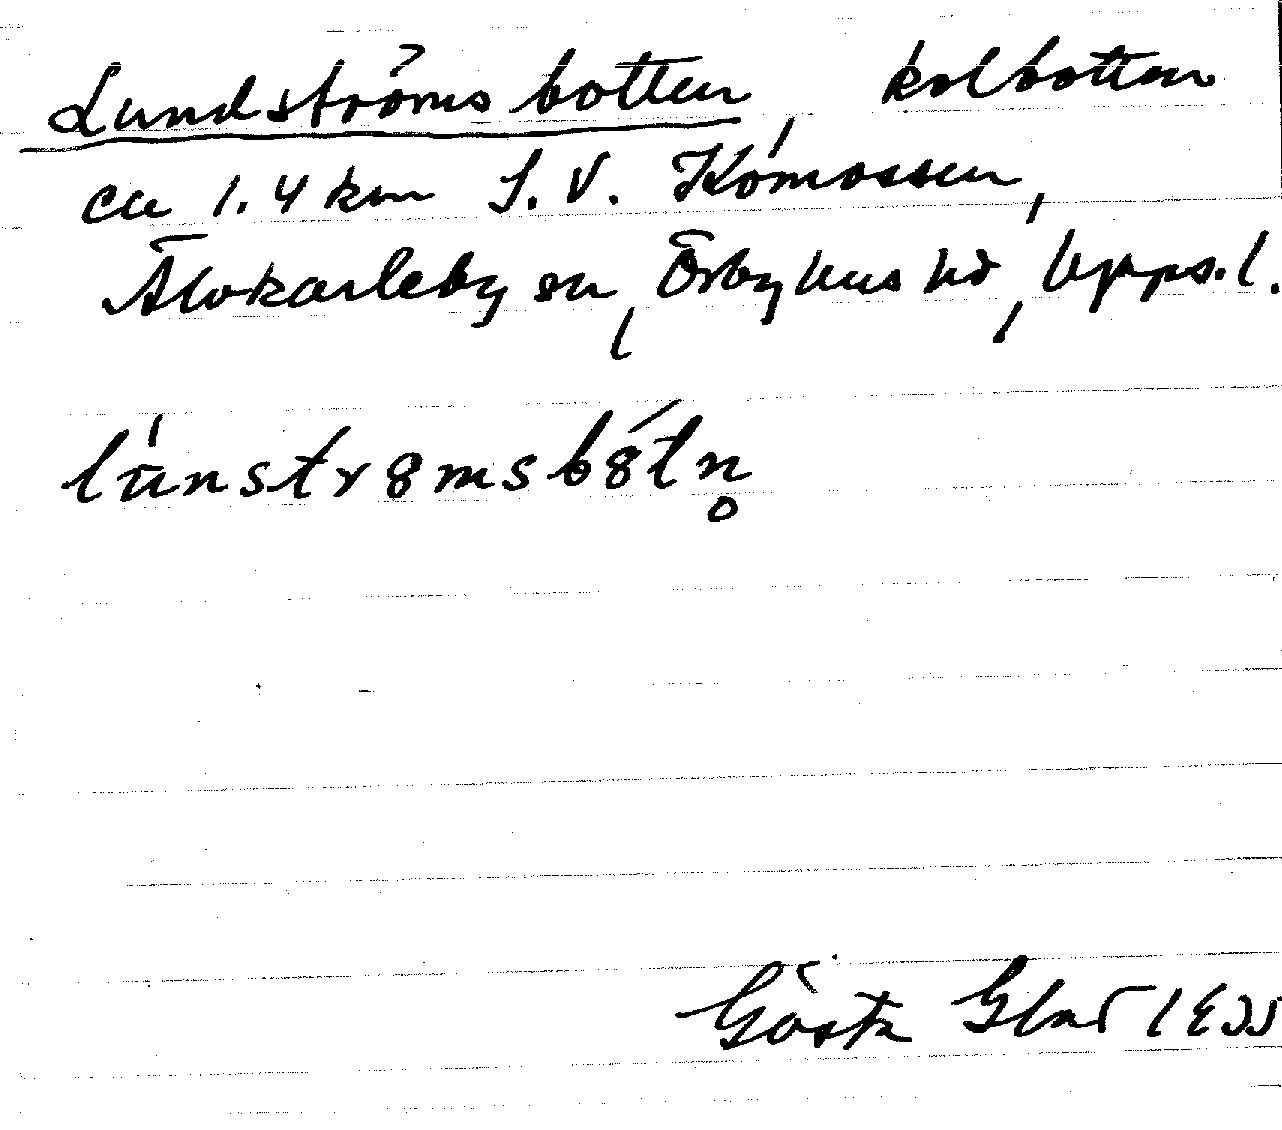 Lundströmsbotten, kolbotten
ca 1.4 km S.V. Komossen,
Älvkarleby sn, Örbyhus hd, Upps.l.
lùnstrømsbøtn̥
Gösta